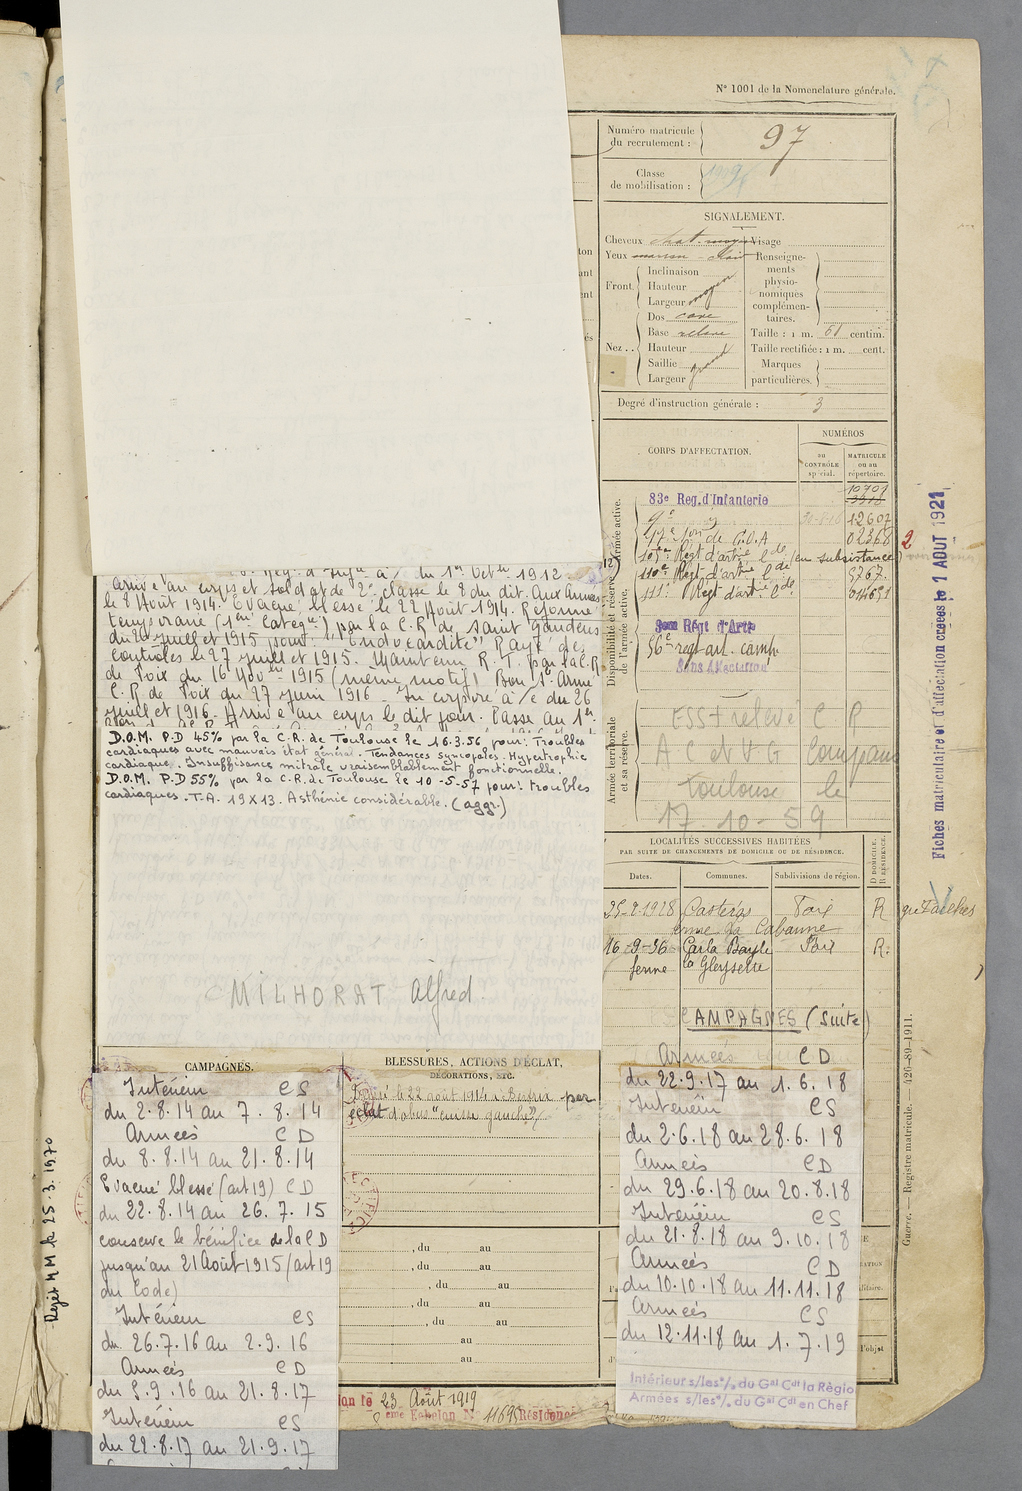 N° 1001 de la Nomenclature générale.
Numéro matricule
du recrutement :
97
Classe
de mobilisation :
SIGNALEMENT.
Cheveux chat. moyen Visage
Yeux marron - clair Renseigne-
ments
physio-
nomiques
complémen-
taires.
Front.
Inclinaison
Hauteur moyen
Largeur
Dos cave
Base relevé
Nez..
Hauteur
Saillie
Largeur
Taille : 1 m. 61 centim.
Taille rectifiée : 1 m. cent.
Marques
particulières.
Degré d'instruction générale : 3
CORPS D'AFFECTATION.
NUMÉROS
au
CONTRÔLE
spécial.
MATRICULE
ou au
répertoire.
Armée active.
83e Reg. d'Infanterie
10701
9e 12607
17e Son de C.O.A 02368 2
105e Régt d'artie lde (en subsistance)
110e Régt d'artie lde 5267.
111e Régt d'artie lde
Disponibilité et réserve
de l'armée active.
Régt d'Arte
56e regt art. camp.
Sans Affectation
Armée territoriale
et sa réserve.
ESS + relevé C P
A C et V G Campagne
Toulouse le
17-10-59
LOCALITÉS SUCCESSIVES HABITÉES
PAR SUITE DE CHANGEMENTS DE DOMICILE OU DE RÉSIDENCE.
Dates.
Communes.
Subdivisions de région.
D DOMICILE.
R RÉSIDENCE.
25-2-1928 Casteras Foix R
Cabanne
16-9-36 Carla Bayle Foix R.
ferme la Gleysette
CAMPAGNES (suite)
Armées CD
du 22.9.17 au 1.6.18
Intérieur CS
du 2.6.18 au 28.6.18
Armées CD
du 29.6.18 au 20.8.18
Intérieur CS
du 21.8.18 au 9.10.18
Armées CD
du 10.10.18 au 11.11.18
Armées CS
du 12.11.18 au 1.7.19
Intérieur s/les o/. du Gal Cdt la Régio
Armées s/les o/. du Gal Cdt en Chef
Fiches matriculaire et d'affectation créées le 1 AOUT 1921
Guerre. — Registre matricule. — 426-89-1911.
Rég. d'Infie à/c du 1er Octbre 1912.
Arrivé au corps et soldat de 2e classe le 8 du dit. Aux Armées
le 8 Août 1914. Evacué blessé le 22 Août 1914. Réformé
temporaire (1ère Categie) par la C.R. de Saint Gaudens
du 20 juillet 1915 pour: "Endocardite" Rayé des
contrôles le 27 juillet 1915. Maintenu R.T. par la C.R
de Foix du 16 Novbre 1915 (même motif) Bon St Armé
C.R. de Foix du 27 juin 1916 - Incorporé à/c du 26
juillet 1916. Arrivé au corps le dit jour. Passé au 1er
D.O.M. P.D 45% par la C.R. de Toulouse le 16.3.56 pour: Troubles
cardiaques avec mauvais état général. Tendances syncopales. Hypertrophie
cardiaque. Insuffisance mitrale vraisemblablement fonctionnelle.
D.O.M. P.D 55% par la C.R. de Toulouse le 10-5-57 pour: troubles
cardiaques. T.A. 19 X 13. Asthénie considérable. (aggr.)
MILHORAT Alfred.
CAMPAGNES.
Intérieur CS
du 2.8.14 au 7.8.14
Armées CD
du 8.8.14 au 21.8.14
Evacué blessé (art 19) CD
du 22.8.14 au 26.7.15
conserve le bénéfice de la CD
jusqu'au 21 Août 1915 (art 19
du Code)
Intérieur CS
du 26.7.16 au 2.9.16
Armées CD
du 3.9.16 au 21.8.17
Intérieur CS
du 22.8.17 au 21.9.17
BLESSURES, ACTIONS D'ÉCLAT,
DÉCORATIONS, ETC.
le 22 août 1914 à Bertrix par
éclat d'obus "cuisse gauche"
, du au
, du au
, du au
, du au
, du au
au
au
23 Août 1919
eme Echelon N° 11695 Résidence
Rejet MM le 25.3.1970